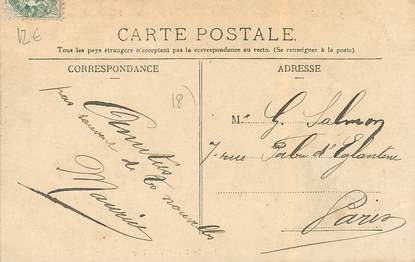 12€
CARTE POSTALE.
Tous les pays étrangers n'acceptent pas la correspondance au recto. (Se renseigner à la poste).
CORRESPONDANCE
ADRESSE
18)
Amitiés
pas souvent de tes nouvelles
Maurice
M. G. Salmon
7 rue Fabre d'Eglantine
Paris